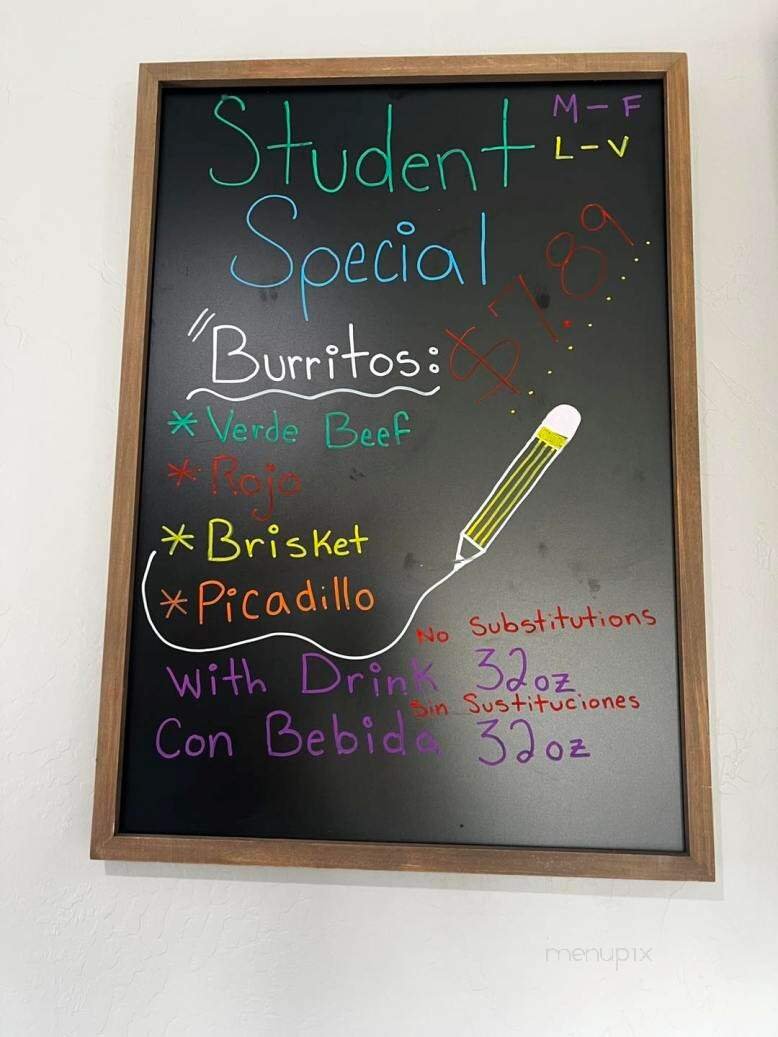 Student
M - F
L - V
Special
$7.89
"Burritos:
* Verde Beef
* Rojo
* Brisket
* Picadillo
No Substitutions
With Drink 32oz
Sin Sustituciones
Con Bebida 32oz
menupix